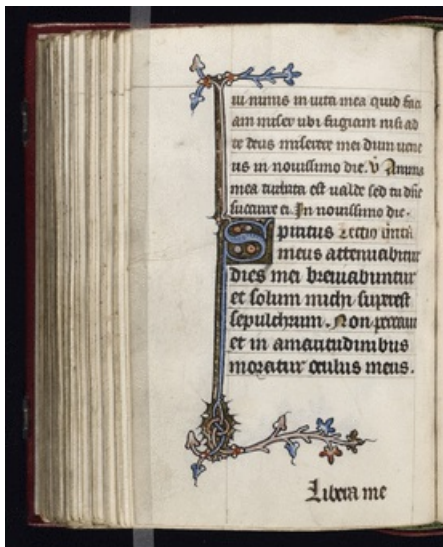 uit nimis in uita mea quid faci
am miser ubi fugiam nisi ad
te deus miserere mei dum uene
ris in nouissimo die. v Anima
mea turbata est ualde sed tu dñe
succurre ei. In nouissimo die.
Spiritus Lectio
meus attenuabitur
dies mei breuiabuntur
et solum michi superest
sepulchrum. Non peccaui
et in amaritudinibus
moratur oculus meus.
Libera me